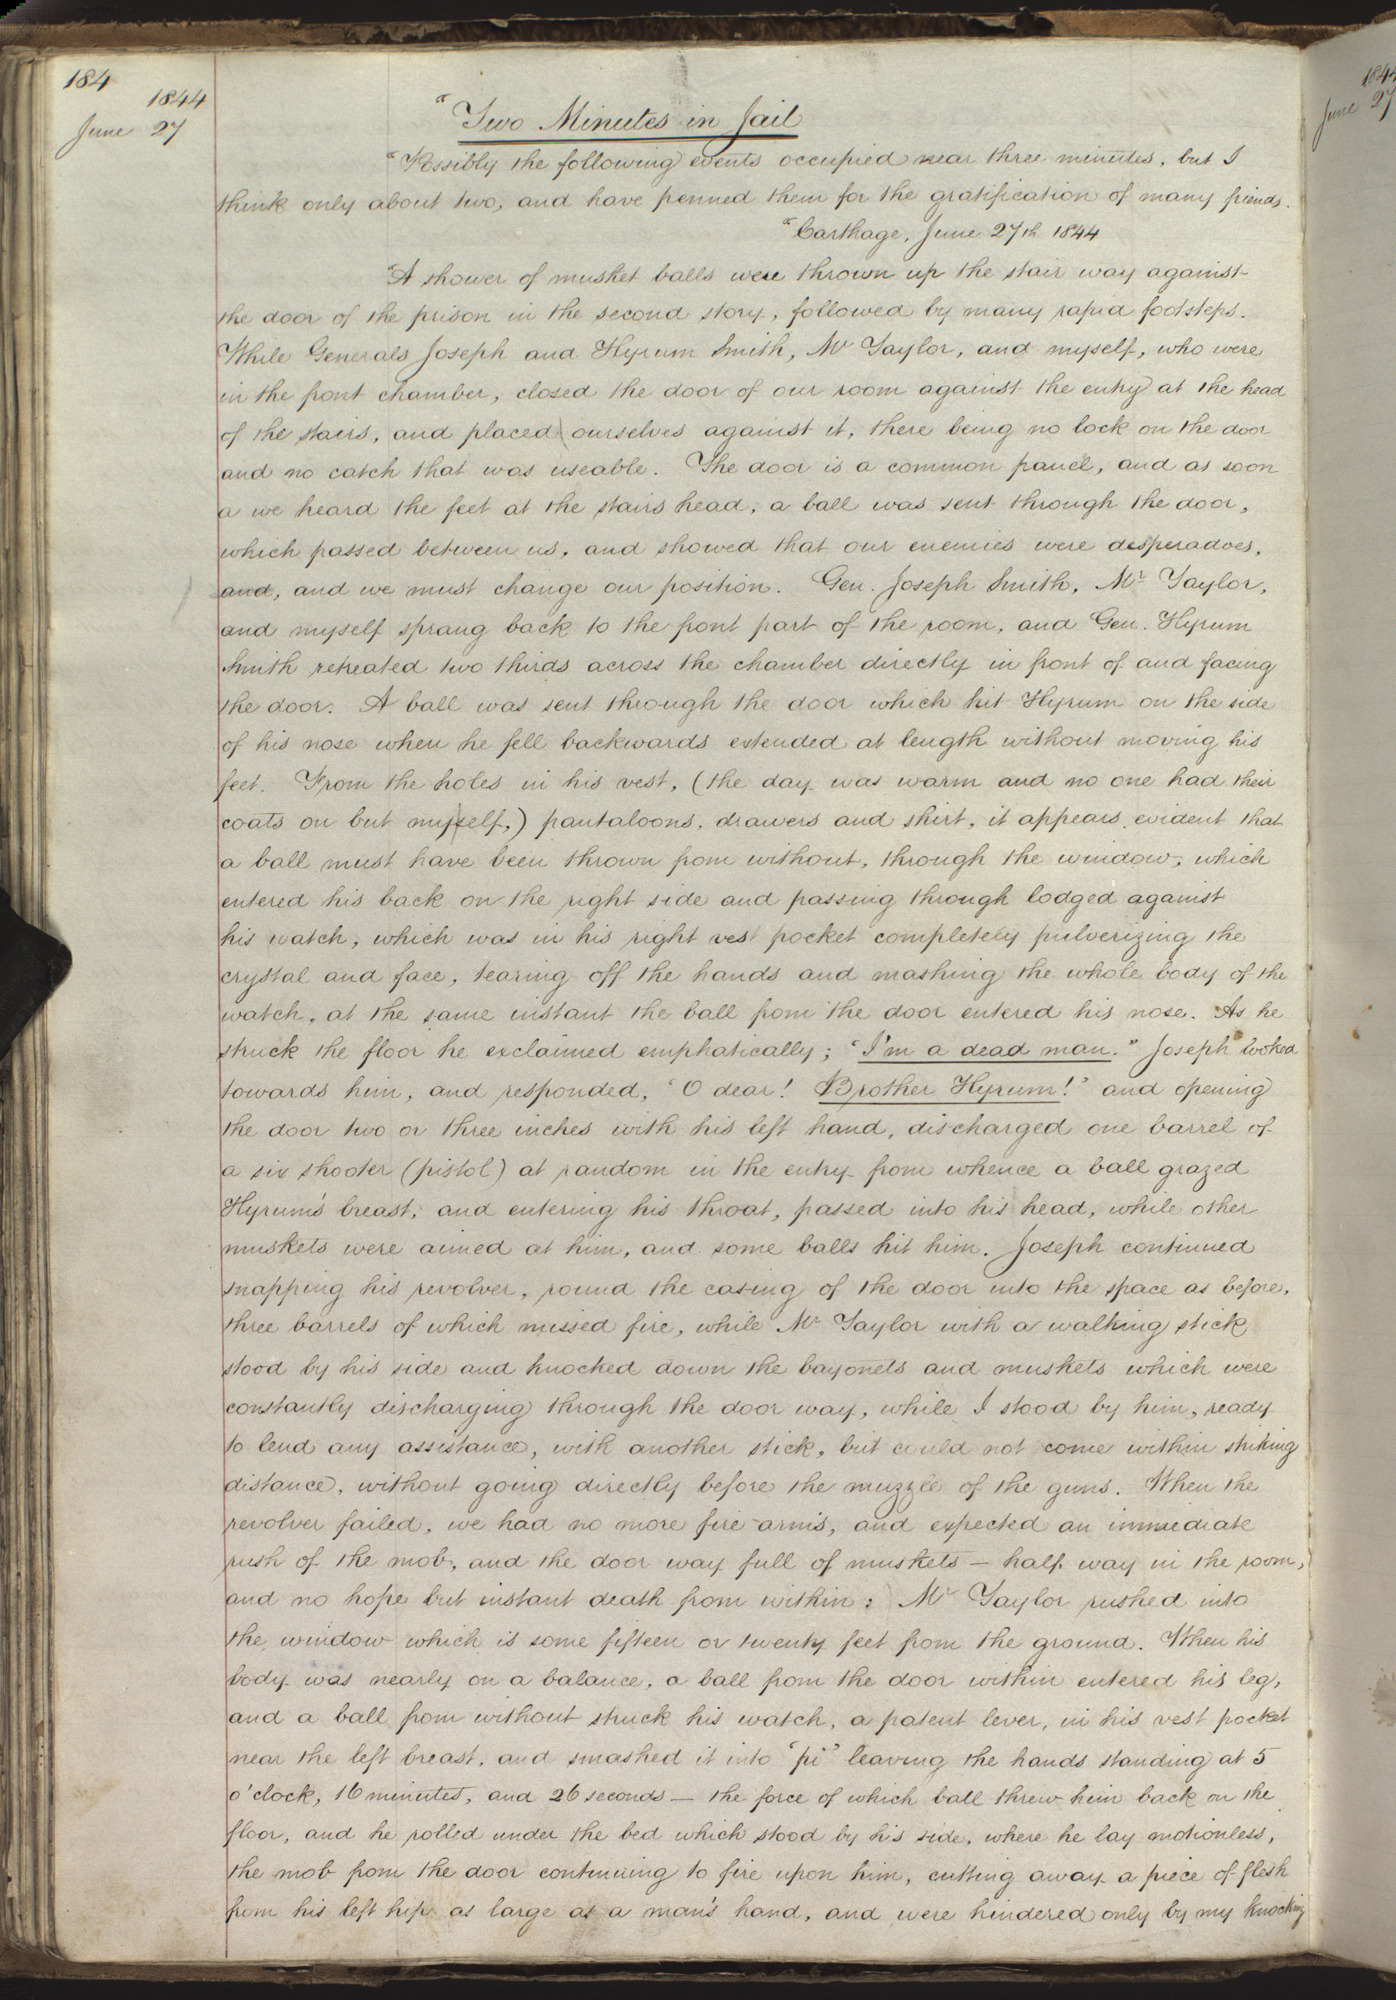 184
1844
June 27
"Two Minutes in Jail
"Possibly the following events occupied near three minutes, but I
think only about two, and have penned them for the gratification of many friends.
"Carthage, June 27th 1844
"A shower of musket balls were thrown up the stair way against
the door of the prison in the second story, followed by many rapid footsteps.
While Generals Joseph and Hyrum Smith, Mr Taylor, and myself, who were
in the front chamber, closed the door of our room against the entry at the head
of the stairs, and placed ourselves against it, there being no lock on the door
and no catch that was useable. The door is a common panel, and as soon
a we heard the feet at the stairs head, a ball was sent through the door,
which passed between us, and showed that our enemies were desperadoes,
and, and we must change our position. Gen. Joseph Smith, Mr Taylor,
and myself sprang back to the front part of the room, and Gen. Hyrum
Smith retreated two thirds across the chamber directly in front of and facing
the door. A ball was sent through the door which hit Hyrum on the side
of his nose when he fell backwards extended at length without moving his
feet. From the holes in his vest, (the day was warm and no one had their
coats on but myself,) pantaloons, drawers and shirt, it appears evident that
a ball must have been thrown from without, through the window, which
entered his back on the right side and passing through lodged against
his watch, which was in his right vest pocket completely pulverizing the
crystal and face, tearing off the hands and mashing the whole body of the
watch, at the same instant the ball from the door entered his nose. As he
struck the floor he exclaimed emphatically; "I'm a dead man." Joseph looked
towards him, and responded, "O dear! Brother Hyrum!" and opening
the door two or three inches with his left hand, discharged one barrel of
a six shooter (pistol) at random in the entry from whence a ball grazed
Hyrum's breast, and entering his throat, passed into his head, while other
muskets were aimed at him, and some balls hit him. Joseph continued
snapping his revolver, round the casing of the door into the space as before,
three barrels of which missed fire, while Mr Taylor with a walking stick
stood by his side and knocked down the bayonets and muskets which were
constantly discharging through the door way, while I stood by him, ready
to lend any assistance, with another stick, but could not come within striking
distance, without going directly before the muzzle of the guns. When the
revolver failed, we had no more fire arms, and expected an immediate
rush of the mob, and the door way full of muskets — half way in the room,
and no hope but instant death from within: Mr Taylor rushed into
the window which is some fifteen or twenty feet from the ground. When his
body was nearly on a balance, a ball from the door within entered his leg,
and a ball from without struck his watch, a patent lever, in his vest pocket
near the left breast, and smashed it into "pi" leaving the hands standing at 5
o'clock, 16 minutes, and 26 seconds — the force of which ball threw him back on the
floor, and he rolled under the bed which stood by his side, where he lay motionless,
the mob from the door continuing to fire upon him, cutting away a piece of flesh
from his left hip as large as a man's hand, and were hindered only by my knocking
1844
June 27